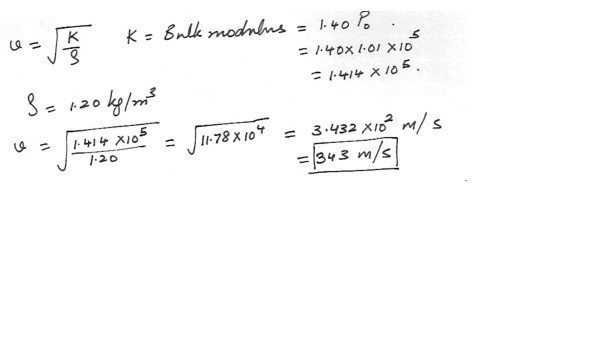 v = √(K/ρ) K = Bulk modulus = 1.40 P₀ .
= 1.40 × 1.01 × 10⁵
= 1.414 × 10⁵.
ρ = 1.20 kg/m³
v = √(1.414 × 10⁵ / 1.20) = √(11.78 × 10⁴) = 3.432 × 10² m/s
= 343 m/s